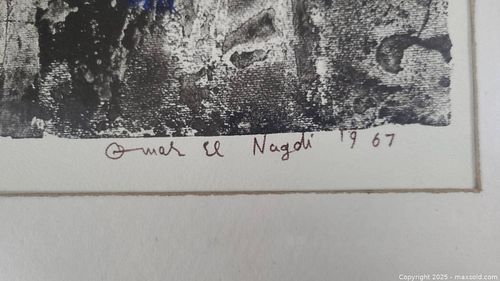 Omar El Nagdi '967
Copyright © 2025 - maxsold.com